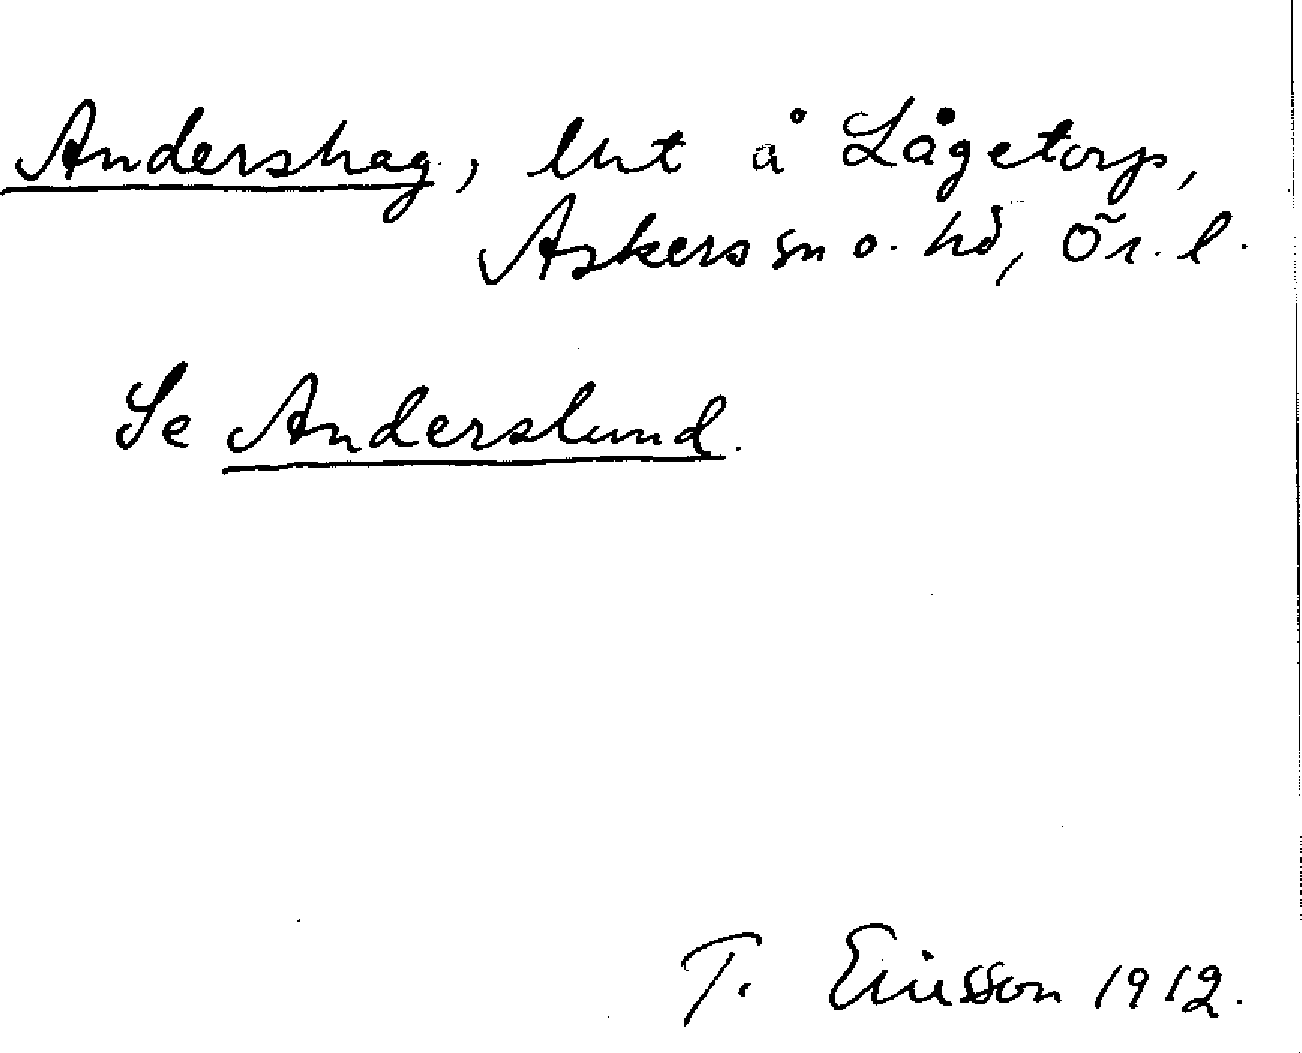 Andershag, lht å Lågetorp,
Askers sn o. hd, Ör. l.
Se Anderslund.
T. Ericsson 1912.